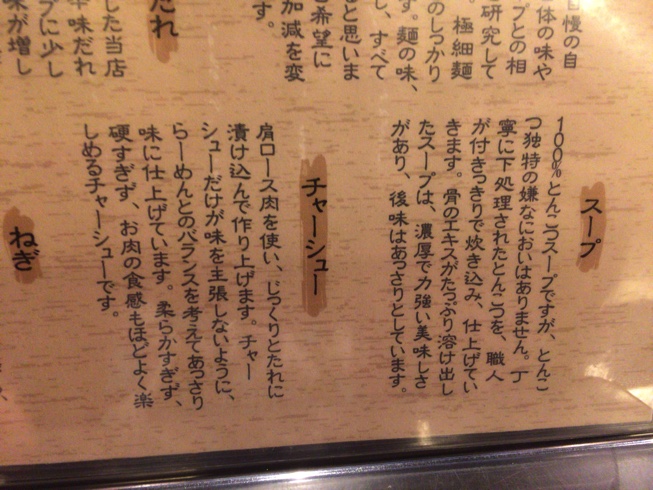 自慢の自
体の味や
プとの相
を研究して
。極細麺
のしっかり
す。麺の味、
し、すべて
ると思いま
ご希望に
加減を変
す。
だれ
した当店
辛味だれ
プに少し
味が増し
スープ
100%とんこつスープですが、とんこ
つ独特の嫌なにおいはありません。丁
寧に下処理されたとんこつを、職人
が付きっきりで炊き込み、仕上げてい
きます。骨のエキスがたっぷり溶け出し
たスープは、濃厚で力強い美味しさ
があり、後味はあっさりとしています。
チャーシュー
肩ロース肉を使い、じっくりとたれに
漬け込んで作り上げます。チャー
シューだけが味を主張しないように、
らーめんとのバランスを考えてあっさり
味に仕上げています。柔らかすぎず、
硬すぎず、お肉の食感もほどよく楽
しめるチャーシューです。
ねぎ